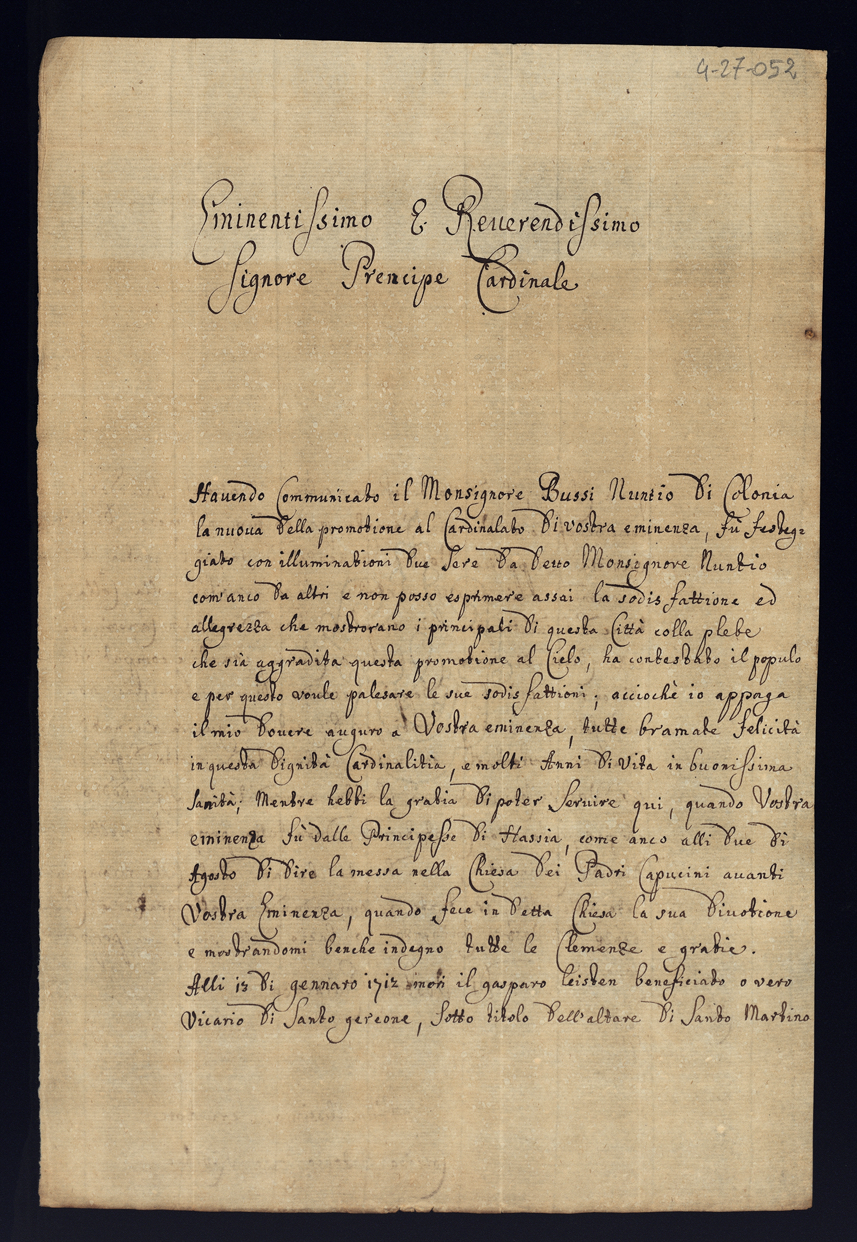 4-27-052
Eminentissimo E Reuerendissimo
Signore Prencipe Cardinale
Hauendo Communicato il Monsignore Bussi Nuntio di Colonia
la nuoua della promotione al Cardinalato di vostra eminenza, fù festeg=
giato con illuminationi due sere da detto Monsignore Nuntio
com'anco da altri e non posso esprimere assai la sodisfattione ed
allegrezza che mostrorano i principali di questa Città colla plebe
che sia aggradita questa promotione al Cielo, ha contestato il populo
e per questo voule palesare le sue sodisfattioni; acciochè io appaga
il mio douere auguro a Vostra eminenza, tutte bramate felicità
in questa dignità Cardinalitia, e molti Anni di vita in buonissima
sanità; Mentre hebbi la gratia di poter seruire qui, quando Vostra
eminenza fù dalle Principesse di Hassia, come anco alli due di
Agosto di dire la messa nella Chiesa dei Padri Capucini auanti
Vostra Eminenza, quando fece in detta Chiesa la sua diuotione
e mostrandomi benche indegno tutte le Clemenze e gratie.
Alli 13 di gennaro 1712 mori il gasparo leisten beneficiato o vero
Vicario di Santo gereone, sotto titolo dell'altare di Santo Martino